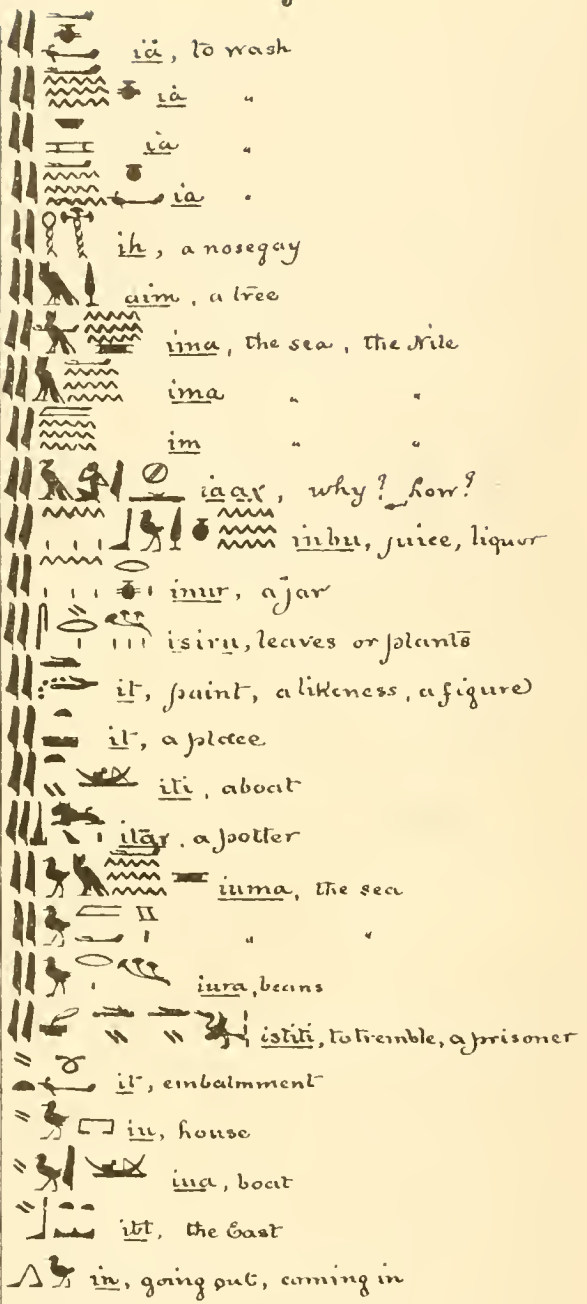 iȧ, to wash
iȧ "
ia "
ia "
ih, a nosegay
aim, a tree
ima, the sea, the Nile
ima " "
im " "
iaaχ, why? how?
inbu, juice, liquor
inur, a jar
isiru, leaves or plants
it, paint, a likeness, a figure
it, a place
iti, a boat
a potter
iuma, the sea
" "
iura, beans
istiti, to tremble, a prisoner
it, embalmment
iu, house
iua, boat
ibt, the East
going out, coming in